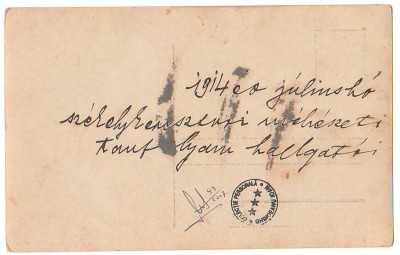 1914 eo júliushó
székelykeresztúri méhészeti
tanf lyam hallgatói
COLECȚIE PERSONALĂ